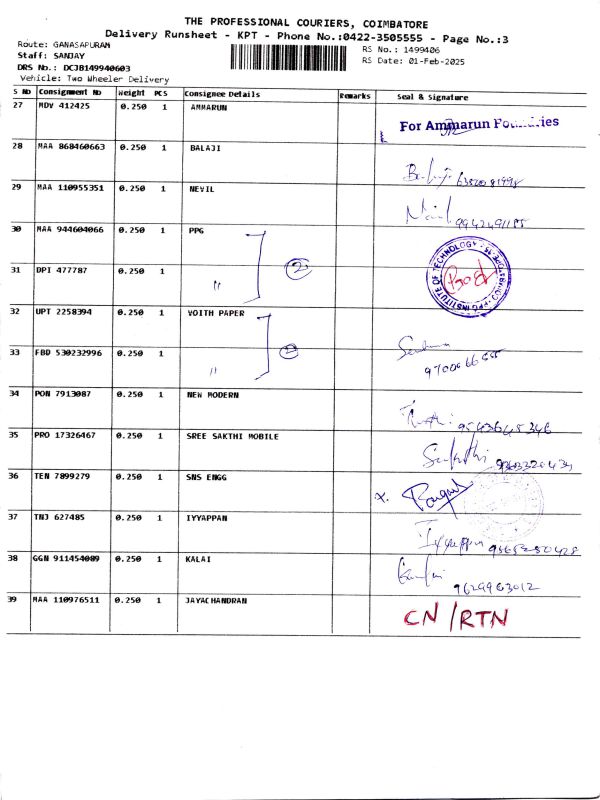 THE PROFESSIONAL COURIERS, COIMBATORE
Delivery Runsheet - KPT - Phone No.:0422-3505555 - Page No.:3
Route: GANASAPURAM
RS No.: 1499406
Staff: SANJAY
RS Date: 01-Feb-2025
DRS No.: DCJB149940603
Vehicle: Two Wheeler Delivery
S No Consignment No Weight PCS Consignee Details Remarks Seal & Signature
27 MDV 412425 0.250 1 AMMARUN
For Ammarun Foundries
28 MAA 868460663 0.250 1 BALAJI
29 MAA 110955351 0.250 1 NEVIL
9942491185
30 MAA 944604066 0.250 1 PPG
31 DPI 477787 0.250 1 " 2
PPG INSTITUTE OF TECHNOLOGY
32 UPT 2258394 0.250 1 VOITH PAPER
33 FBD 530232996 0.250 1 " 2
34 PON 7913087 0.250 1 NEW MODERN
9543645346
35 PRO 17326467 0.250 1 SREE SAKTHI MOBILE
Sakthi
36 TEN 7899279 0.250 1 SNS ENGG
x.
37 TNJ 627485 0.250 1 IYYAPPAN
Iyyappan
38 GGN 911454089 0.250 1 KALAI
9629963012
39 MAA 110976511 0.250 1 JAYACHANDRAN
CN/RTN